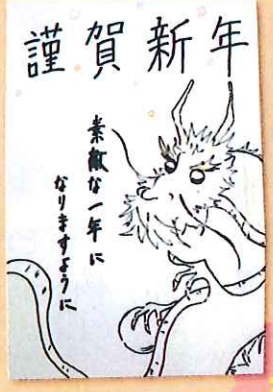 謹賀新年
素敵な一年に
なりますように